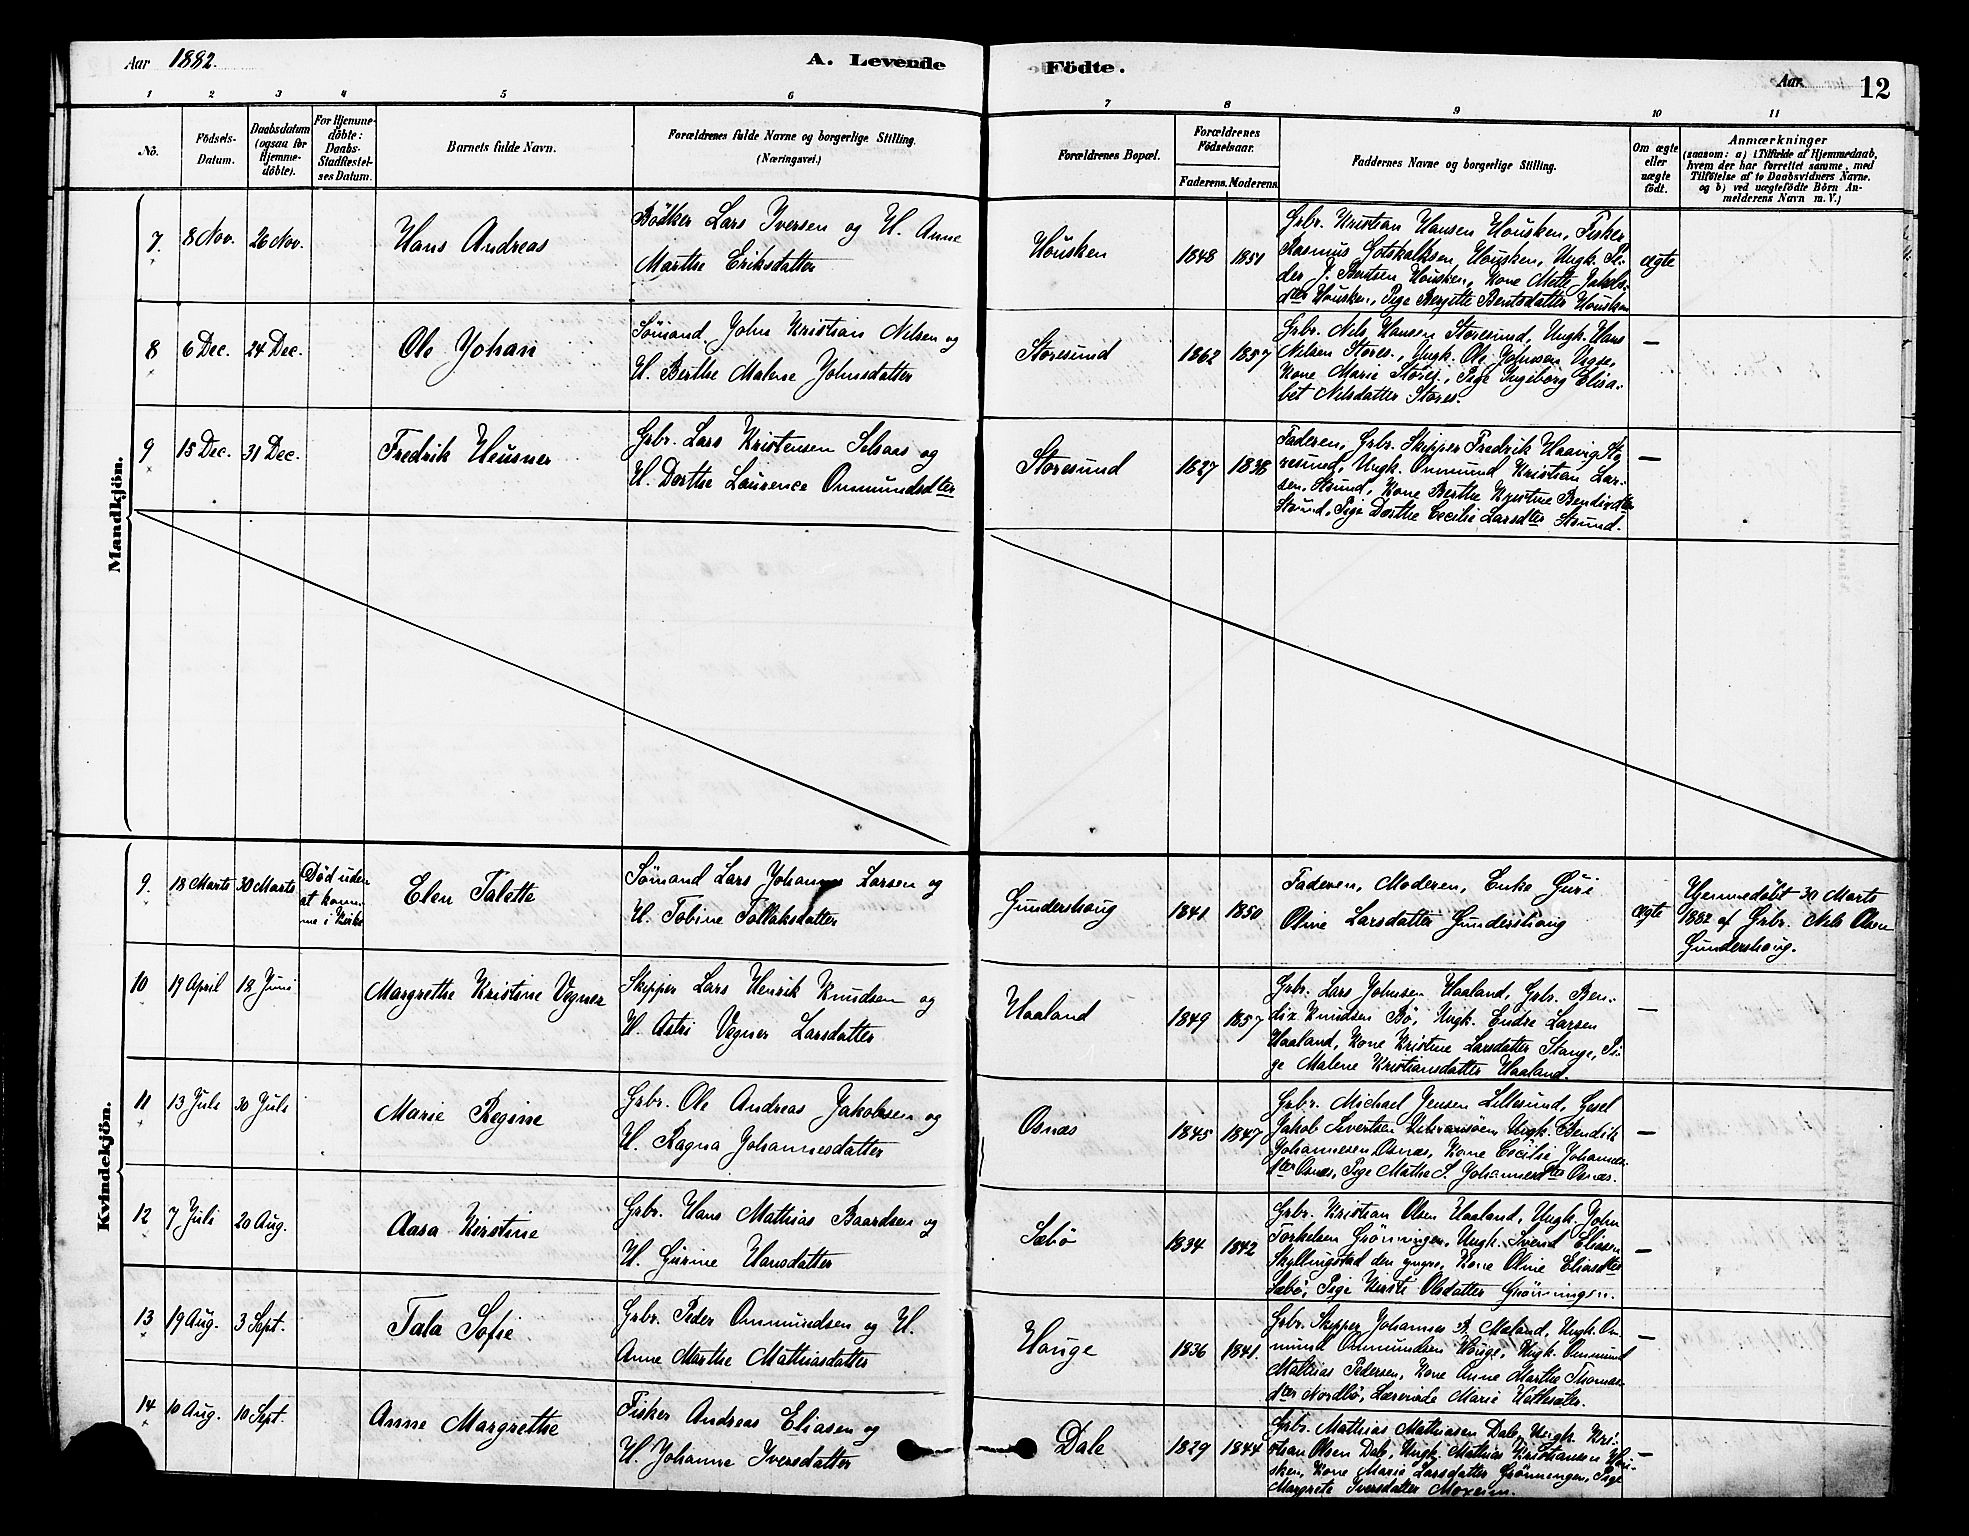 Aar 1882.
A. Levende Födte.
Aar 12
1 2 3 4 5 6 7 8 9 10 11
No.
Födsels-Datum.
Daabsdatum (ogsaa for Hjemme-döbte).
For Hjemme-döbte: Daabs-Stadfæstel-ses Datum.
Barnets fulde Navn.
Forældrenes fulde Navne og borgerlige Stilling. (Næringsvei.)
Forældrenes Bopæl.
Forældrenes Födselsaar.
Faderens. Moderens.
Faddernes Navne og borgerlige Stilling.
Om ægte eller uægte födt.
Anmærkninger
(saasom: a) i Tilfælde af Hjemmedaab,
hvem der har forrettet samme, med
Tilföielse af to Daabsvidners Navne.
og b) ved uægtefödte Börn An-
melderens Navn m. V.)
Mandkjön.
7. 8 Nov. 26 Nov. Hans Andreas
Bödker Lars Iversen og H. Anne
Marthe Eriksdatter
Housken 1848 1851
Grbr. Kristian Hansen Housken, Fisker
Rasmus Gotskalksen, Housken, Ungk. Pe-
der J. Bentsen Housken, Kone Mette Jakobs-
dter Housken, Pige Bergitte Bentsdatter Housken
ægte
8 6 Dec. 24 Dec. Ole Johan
Sömand John Kristian Nilsen og
H. Berthe Malene Johnsdatter
Storesund 1862 1857
Grbr. Nils Hansen Storesund, Ungk. Hans
Nilsen Stores., Ungk. Ole Johnsen
Kone Marie Stores., Pige Ingeborg Elisa-
bet Nilsdatter Stores.
—
9 15 Dec. 31 Dec. Fredrik Heusner
Grbr. Lars Kristensen Selsaas og
H. Dorthe Laurence Ommundsdter
Storesund 1827 1838
Faderen, Grbr. Skipper Fredrik Haavig Sto-
resund, Ungk. Ommund Kristian Lar-
sen, Stsund, Kone Berthe Kristine Bendixdter
Stsund, Pige Dorthe Cecilie Larsdter Stsund.
—
Kvindekjön.
9. 18 Marts 30 Marts Död uden
at kom-
me i Kirke
Elen Talette
Sömand Lars Johannes Larsen og
H. Tobine Tollaksdatter
Gundershaug 1841 1850
Faderen, Moderen, Enke Guri
Oline Larsdatter Gundershaug
ægte
Hjemmedöbt 30 Marts
1882 af Grbr. Nils Olsen
Gundershaug.
10 19 April 18 Juni Margrethe Kristine Vegner
Skipper Lars Henrik Knudsen og
H. Astri Vegner Larsdatter
Haaland 1849 1857
Grbr. Lars Johnsen Haaland, Grbr. Ben-
dix Knudsen Bö, Ungk. Endre Larsen
Haaland, Kone Kristine Larsdatter Stange, Pi-
ge Malene Kristiansdatter Haaland.
—
11 13 Juli 30 Juli Marie Regine
Grbr. Ole Andreas Jakobsen og
H. Ragna Johannesdatter
Osnæs 1845 1847
Grbr. Michael Jensen Lillesund, Gesel
Jakob Sivertsen Ungk. Bendik
Johannesen Osnæs, Kone Cecilie Johannes-
dter Osnæs, Pige Mathe S. Johannesdter Osnæs.
—
12 7 Juli 20 Aug. Aasa Kirstine
Grbr. Hans Mathias Baardsen og
H. Gurine Hansdatter
Sæbö 1834 1842
Grbr. Kristian Olsen Haaland, Ungk. John
Torkelsen Grönningen, Ungk. Svend Eliasen
Skyllingstad den yngre, Kone Oline Eliasdter
Sæbö, Pige Kirsti Olsdatter Grönningen.
—
13 19 Aug. 3 Sept. Tala Sofie
Grbr. Peder Ommundsen og H.
Anne Marthe Mathiasdatter
Hauge 1836 1841.
Grbr. Skipper Johannes Mæland, Ungk. Om-
mund Ommundsen Hauge, Ungk. Ommund
Mathias Pedersen, Kone Anne Marthe Thomas-
dter Nordbö, Lærerinde Marie
—
14 10 Aug. 10 Sept. Anne Margrethe
Fisker Andreas Eliasen og
H. Johanne Iversdatter
Dale 1829 1844
Grbr. Mathias Mathiasen Dale, Ungk. Kri-
stian Olsen Dale, Ungk. Mathias Kristiansen Hou-
sken, Kone Marie Larsdatter Grönningen, Pige
Margrete Iversdatter Moxeim.
—